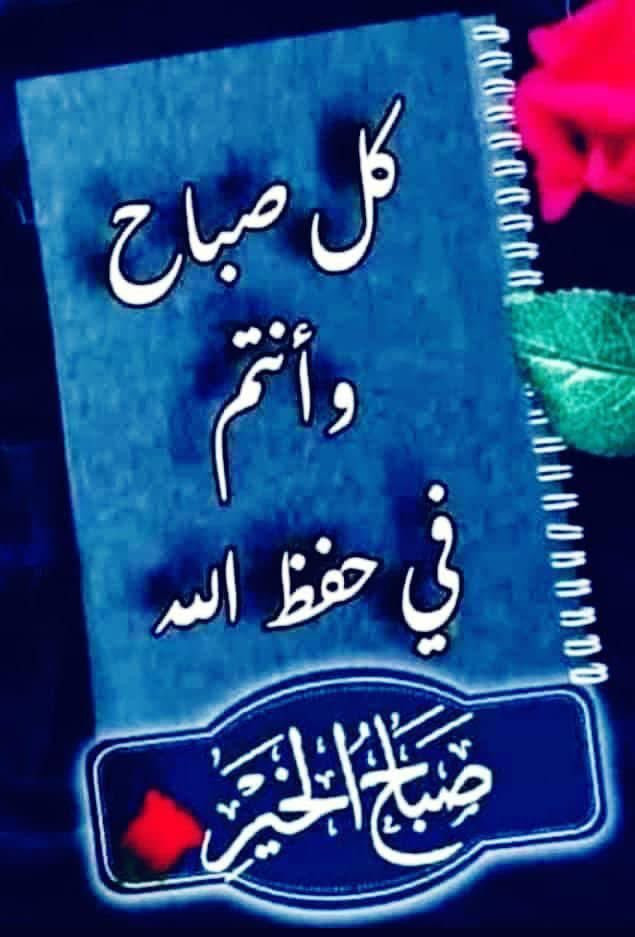 كل صباح
وأنتم
في حفظ الله
صَبَاحُ الخَيْر